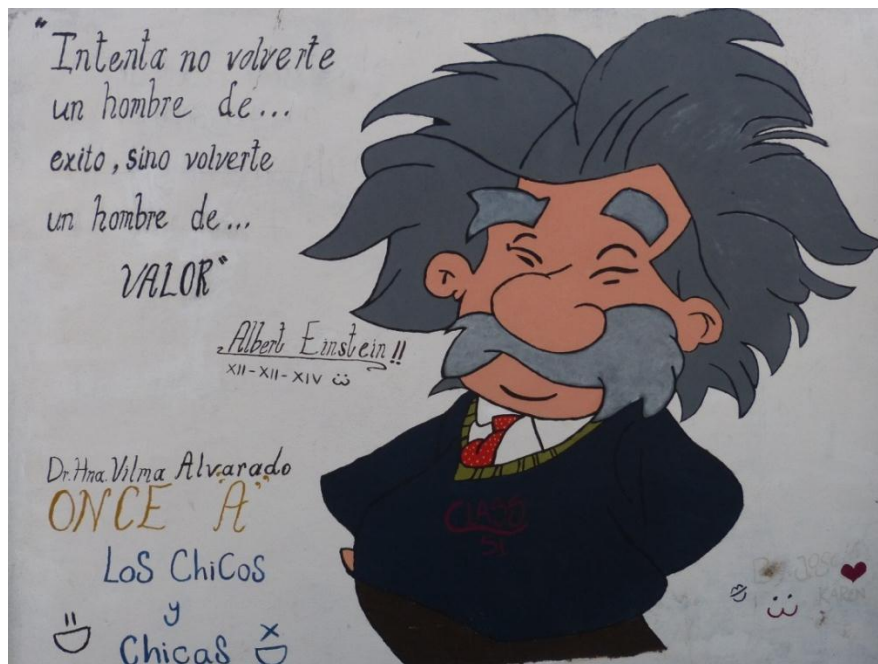 "Intenta no volverte
un hombre de...
exito, sino volverte
un hombre de...
VALOR"
Albert Einstein!!
XII-XII-XIV
Dr. Hna. Vilma Alvarado
ONCE "A"
Los Chicos
y
Chicas
KAREN